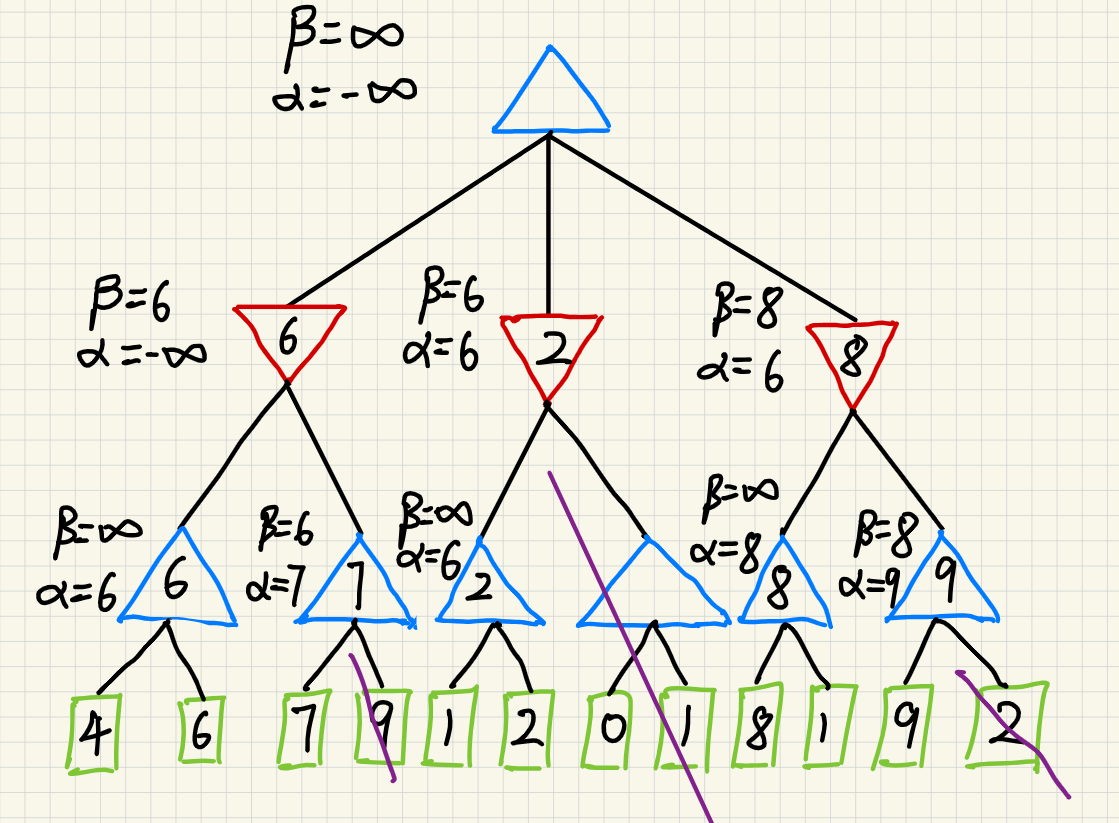 β=∞
α=-∞
β=6
α=-∞
6
β=6
α=6
2
β=8
α=6
8
β=∞
α=6
6
β=6
α=7
7
β=∞
α=6
2
β=∞
α=8
8
β=8
α=9
9
4
6
7
9
1
2
0
1
8
1
9
2